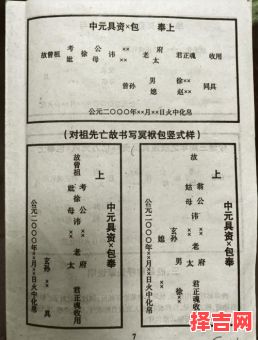 中元具资×包 奉上
故曾祖 考 徐公 讳 ×× 老 府 君正魂 收用
妣 母 ×× 太
曾孙 男 徐×× 同具
媳 赵××
公元二〇〇〇年××月××日火中化帛
（对祖先亡故书写冥楸包竖式样）
上
中元具资×包奉
故高祖 考 徐公 讳 ×× 老 府 君正魂收用
妣 母 ×× 太
玄孙 ×× 具
公元二〇〇〇年××月××日火中化帛
上
中元具资×包奉
故 翁 公 讳 ×× 老 府 君正魂收用
姑 母 ×× 太
玄孙 男 徐××
媳 ××
公元二〇〇〇年××月××日火中化帛
7
择吉网